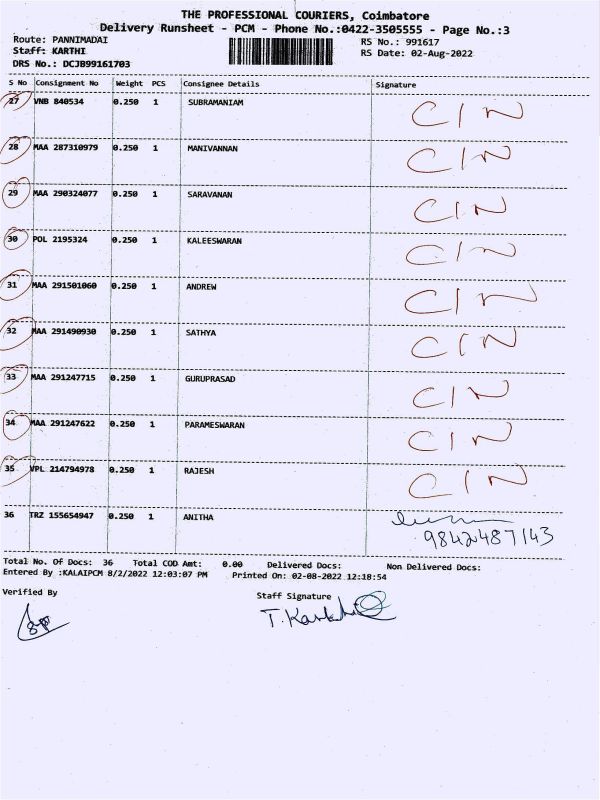 THE PROFESSIONAL COURIERS, Coimbatore
Delivery Runsheet - PCM - Phone No.:0422-3505555 - Page No.:3
Route: PANNIMADAI RS No.: 991617
Staff: KARTHI RS Date: 02-Aug-2022
DRS No.: DCJB99161703
S No Consignment No Weight PCS Consignee Details Signature
27 VNB 840534 0.250 1 SUBRAMANIAM CIN
28 MAA 287310979 0.250 1 MANIVANNAN CIN
29 MAA 290324077 0.250 1 SARAVANAN CIN
30 POL 2195324 0.250 1 KALEESWARAN CIN
31 MAA 291501060 0.250 1 ANDREW CIN
32 MAA 291490930 0.250 1 SATHYA CIN
33 MAA 291247715 0.250 1 GURUPRASAD CIN
34 MAA 291247622 0.250 1 PARAMESWARAN CIN
35 VPL 214794978 0.250 1 RAJESH CIN
36 TRZ 155654947 0.250 1 ANITHA
9842487143
Total No. Of Docs: 36 Total COD Amt: 0.00 Delivered Docs: Non Delivered Docs:
Entered By :KALAIPCM 8/2/2022 12:03:07 PM Printed On: 02-08-2022 12:18:54
Verified By Staff Signature
T. Karthi